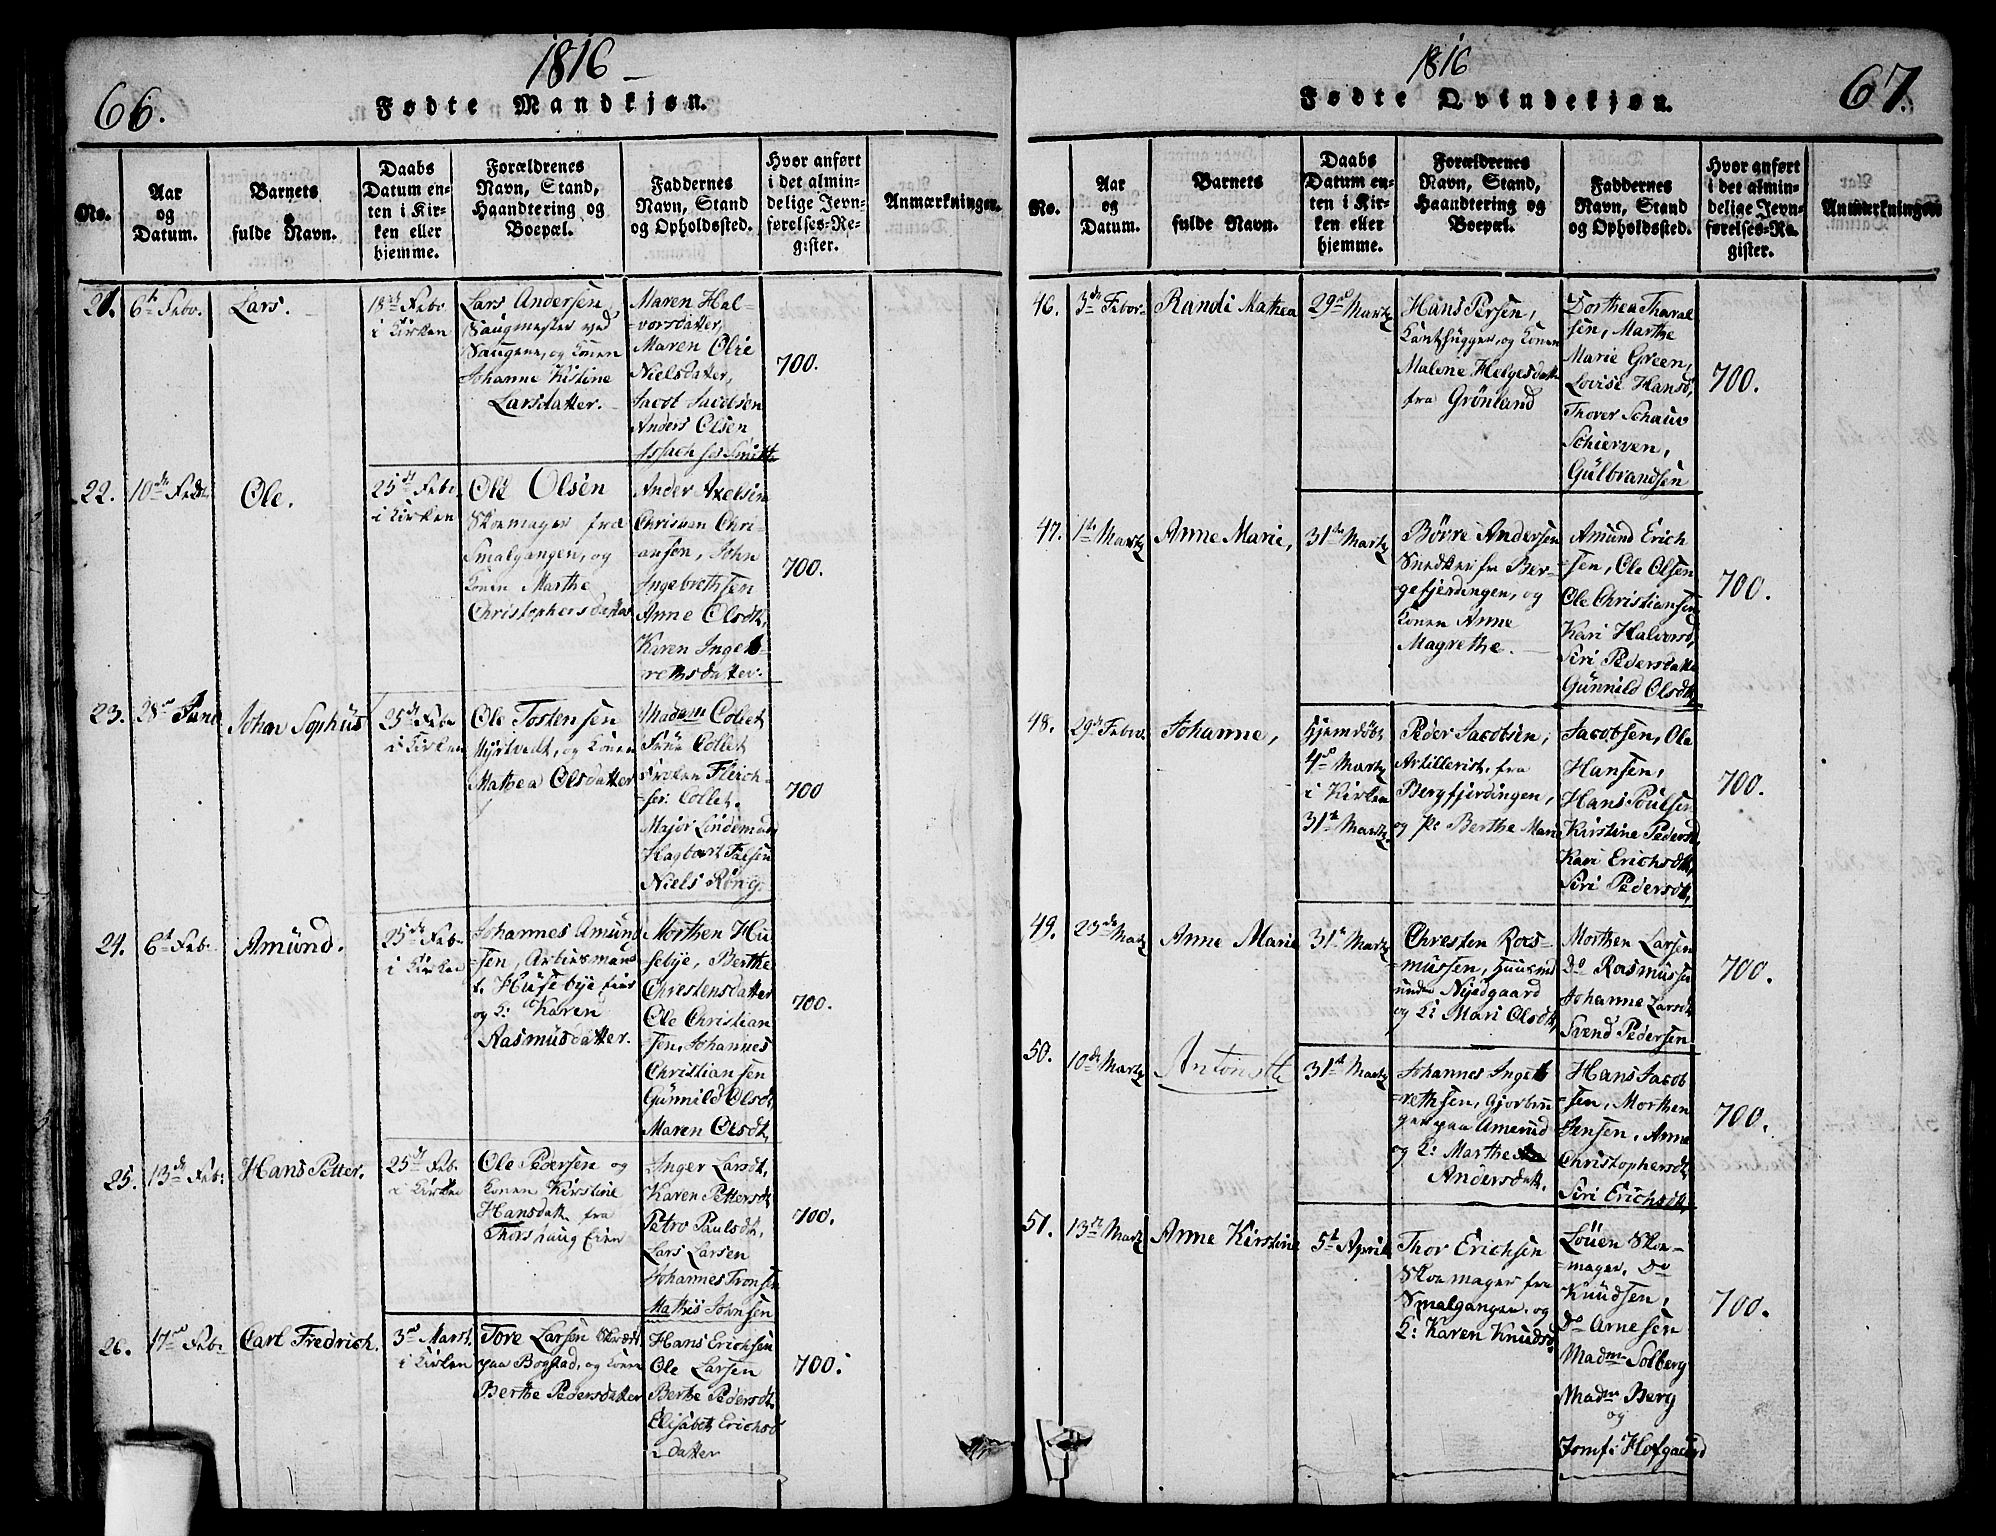 1816
66.
Fødte Mandkjøn.
No.
Aar
og
Datum.
Barnets
fulde Navn.
Daabs
Datum en-
ten i Kir-
ken eller
hjemme.
Forældrenes
Navn, Stand,
Haandtering og
Boepæl.
Faddernes
Navn, Stand
og Opholdssted.
Hvor anført
i det almin-
delige Jevn-
førelses-Re-
gister.
Anmærkninger.
21.
6te Febr.
Lars.
18de Febr
i Kirken
Lars Andersen
Saugmester ved
Saugene, og Konen
Johanne Kistine
Larsdatter.
Maren Hal-
vorsdatter,
Maren Olie
Nielsdatter,
Jacob Jacobsen
Anders Olsen
700.
22.
10de Febr
Ole.
25de Febr
i Kirken
Ole Olsen
Skoemager fra
Smalgangen, og
Konen Marthe
Christophersdatter
Ander Axelsen
Christian Chri-
ansøn, John
Ingebrethsen
Anne Olsdtr,
Karen Ingeb-
rethsdatter.
700.
23.
28de Janu
Johan Sophus
25de Feb
i Kirken
Ole Tostensen
Myrtvedt, og Konen
Mathea Olsdatter
Madam Collet
Frue Collet
Frølen Fleisch-
=ser: Collet.
Major Lindeman
Hagbart Falsen
Niels Røng.
700
24.
6te Feb.
Amund.
25de Feb.
i Kirken
Johannes Amund
=sen, Arbeidsmand
t. Husebye Eier
og K: Karen
Rasmusdatter.
Morthen Hu
sebye, Berthe
Chrestensdatter
Ole Christian
sen, Johannes
Christiansen
Gunnild Olsdt,
Maren Olsdt,
700.
25.
13de Feb:
Hans Petter.
25de Feb.
i Kirken
Ole Pedersen og
Konen Kirstine
Hansdatt. fra
Thorshaug Eier
Inger Larsdt,
Karen Pettersdt
Petro Paulsdt,
Lars Larsen
Johannes Tronsen
Mathis Johnsen
700.
26.
17de Feb.
Carl Fredrich.
3de Mart.
i Kirken
Tore Larsen Skrædd
paa Bogstad, og Konen
Berthe Pedersdatter
Hans Erichsen
Ole Larsen
Berthe Pedersdt.
Elisabeth Erichs-
datter
700.
1816
67.
Fødte Qvindekjøn.
No.
Aar
og
Datum.
Barnets
fulde Navn.
Daabs
Datum en-
ten i Kir-
ken eller
hjemme.
Forældrenes
Navn, Stand,
Haandtering og
Boepæl.
Faddernes
Navn, Stand
og Opholdssted.
Hvor anført
i det almin-
delige Jevn-
førelses-Re-
gister.
Anmærkninger
46.
3de Febr-
Randi Mathea
29de Martz
Hans Persen,
Kanthugger, og Konen
Malene Helgesdatt
fra Grønland
Dorthea Tharal
sen, Marthe
Marie Green,
Lovise Hansd,
Thover Schauv
Schierven,
Gulbrandsen
700.
47.
1te Martz
Anne Marie,
31de Martz
Børre Andersen
Snedker fra Ber-
gefjerdingen, og
Konen Anne
Magrethe.
Amund Erich
sen, Ole Olsen
Ole Christiansen
Kari Halvorsd,
Siri Pedersdatt
Gunnild Olsdt,
700.
48.
29de Febr.
Johanne,
Hjemdøbt
4de Martz
i Kirken
31te Martz
Peder Jacobsen,
Artillerist. fra
Bergfjerdingen,
og K: Berthe Marie
Jacobsen, Ole
Hansen,
Hans Poulsen
Kirstine Pedersd,
Kari Erichsdt,
Siri Pedersdt,
700.
49.
23de Martz
Anne Marie
31te Martz
Chresten Ras-
=mussen, Huusmd
under Nijedgaard
og K: Mari Olsdt,
Morthen Larsen
Do Rasmussen
Johanne Larsdt
Svend Pedersen
700.
50.
10de Martz
Antonette
31te Martz
Johannes Ingeb
=rethsen, Gjorbru
ger paa Amerud
og K: Marthe
Andersdatt.
Hans Jacob
=sen, Morthen
Jensen, Anne
Christophersdt,
Siri Erichsdt,
700.
51.
13de Martz
Anne Kirstine
5te April
Thor Erichsen
Skoemager fra
Smalgangen, og
K: Karen Knudsd,
Løuen Skoe-
=mager, Do
Knudsen,
Do Arnesen
Madm Solberg
Madm Berg
og
Jomf: Hofgaard
700.